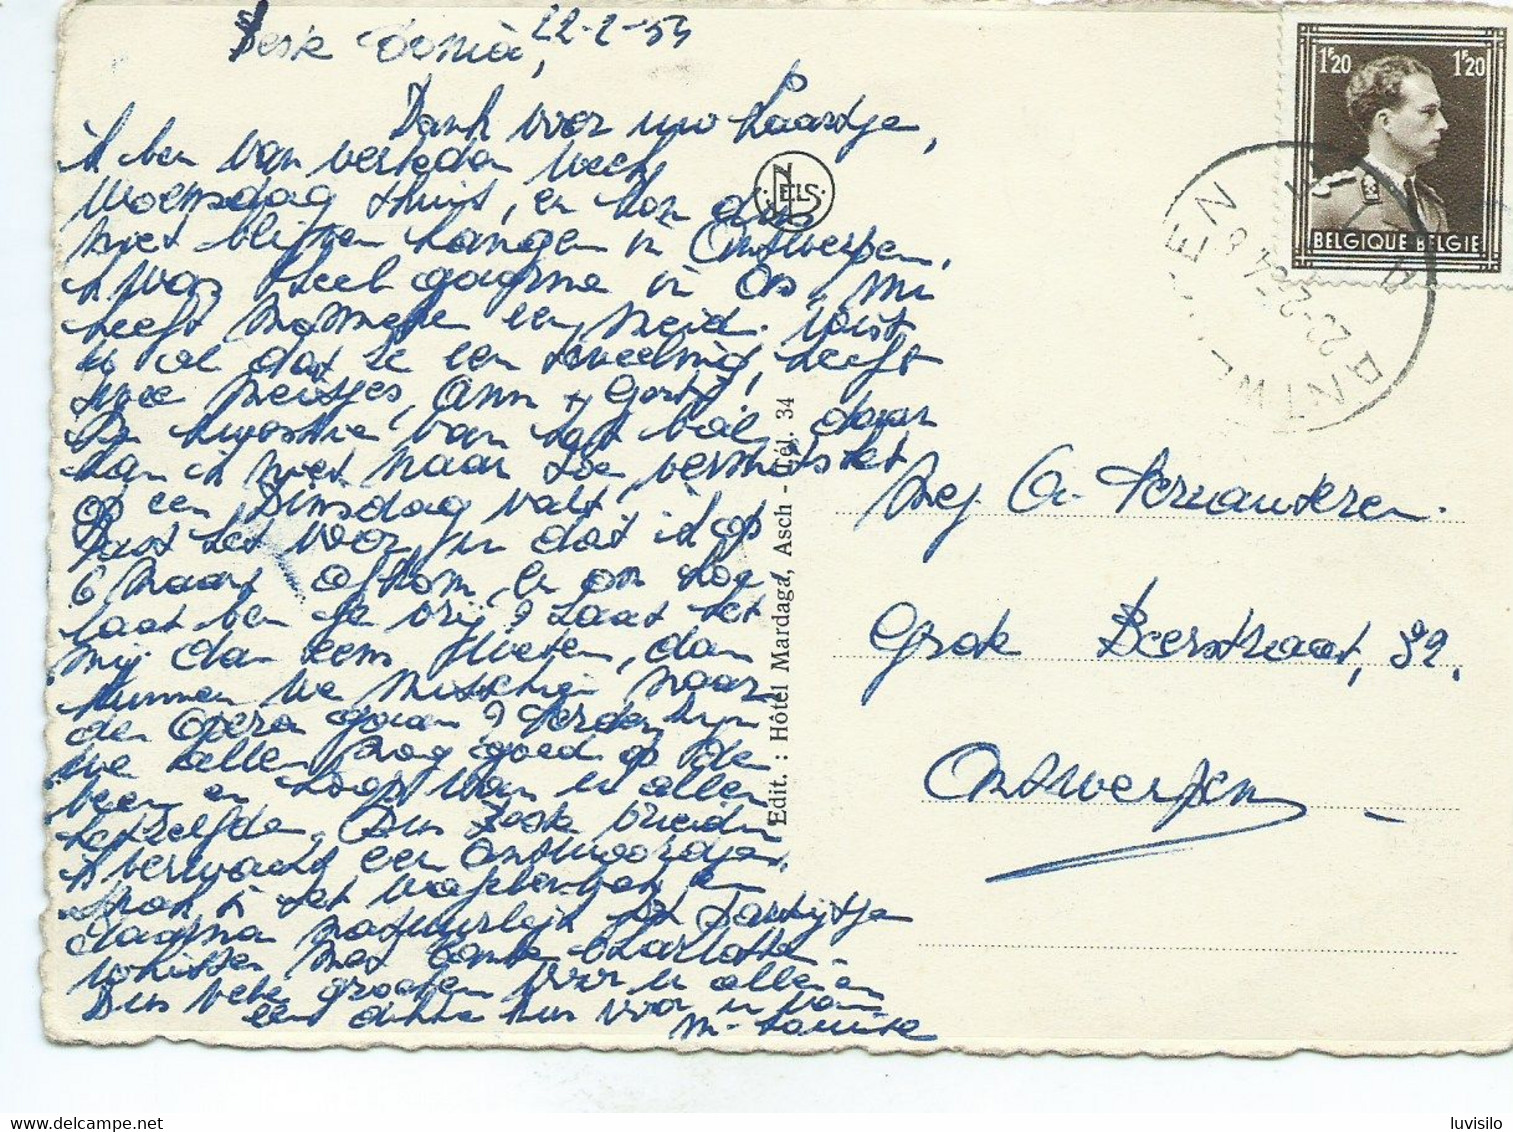 22-2-54
Beste Sonia,
Dank voor uw kaartje,
ik ben van verleden week
Woensdag thuis, en kon dus
niet blijven hangen in Antwerpen.
k was heel gaarne in
heeft een meid. Wist
u al dat ze een tweeling heeft
twee meisjes, Ann + Gerty!
van het bal, daar
kan ik niet naar toe vermits het
op een Dinsdag valt.
Past het voor u dat ik op
6 Maart afkom, en om hoe
laat ben je vrij? Laat het
mij dan eens weten, dan
kunnen we misschien naar
de Opera gaan? Verder zijn
we allen nog goed op de
been en hoop van u allen
hetzelfde. Dus beste vriendin
ik verwacht een antwoordje,
en
daarna natuurlijk het partijtje
whisten met tante Charlotte.
Dus vele groeten voor u allen en
een dikke kus voor u van
M-Louise
NELS
Edit. : Hôtel Mardaga, Asch - Tél. 34
1F20 1F20
BELGIQUE BELGIE
ANTWERPEN
22-2-54
Mej. A. Vervauteren.
Grote Beerstraat, 32.
Antwerpen -
luvisilo